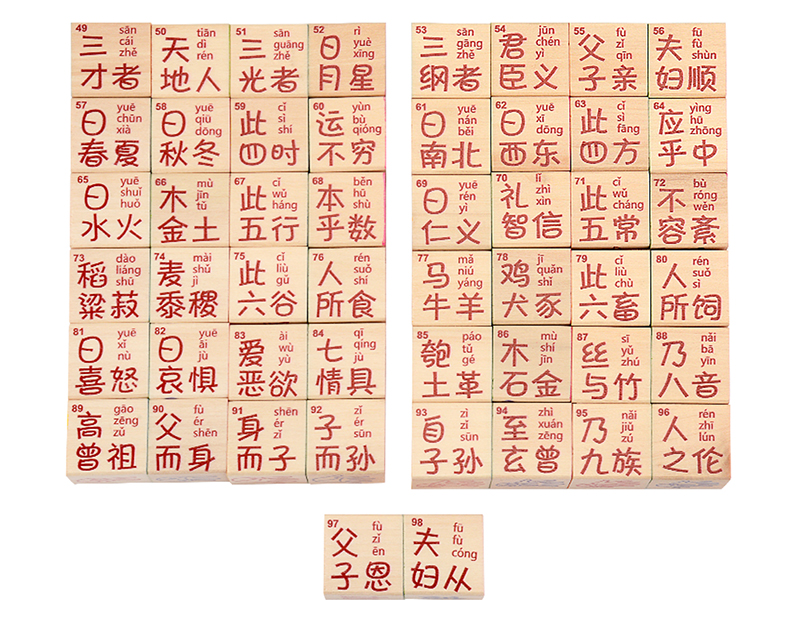 49 三 sān cái zhě
才者
50 天 tiān dì rén
地人
51 三 sān guāng zhě
光者
52 日 rì yuè xīng
月星
57 曰 yuē chūn xià
春夏
58 曰 yuē qiū dōng
秋冬
59 此 cǐ sì shí
四时
60 运 yùn bù qióng
不穷
65 曰 yuē shuǐ huǒ
水火
66 木 mù jīn tǔ
金土
67 此 cǐ wǔ háng
五行
68 本 běn hū shù
乎数
73 稻 dào liáng shū
粱菽
74 麦 mài shǔ jì
黍稷
75 此 cǐ liù gǔ
六谷
76 人 rén suǒ shí
所食
81 曰 yuē xǐ nù
喜怒
82 曰 yuē āi jù
哀惧
83 爱 ài wù yù
恶欲
84 七 qī qíng jù
情具
89 高 gāo zēng zǔ
曾祖
90 父 fù ér shēn
而身
91 身 shēn ér zǐ
而子
92 子 zǐ ér sūn
而孙
53 三 sān gāng zhě
纲者
54 君 jūn chén yì
臣义
55 父 fù zǐ qīn
子亲
56 夫 fū fù shùn
妇顺
61 曰 yuē nán běi
南北
62 曰 yuē xī dōng
西东
63 此 cǐ sì fāng
四方
64 应 yìng hū zhōng
乎中
69 曰 yuē rén yì
仁义
70 礼 lǐ zhì xìn
智信
71 此 cǐ wǔ cháng
五常
72 不 bù róng wěn
容紊
77 马 mǎ niú yáng
牛羊
78 鸡 jī quǎn shǐ
犬豕
79 此 cǐ liù chù
六畜
80 人 rén suǒ sì
所饲
85 匏 páo tǔ gé
土革
86 木 mù shí jīn
石金
87 丝 sī yǔ zhú
与竹
88 乃 nǎi bā yīn
八音
93 自 zì zǐ sūn
子孙
94 至 zhì xuán zēng
玄曾
95 乃 nǎi jiǔ zú
九族
96 人 rén zhī lún
之伦
97 父 fù zǐ ēn
子恩
98 夫 fū fù cóng
妇从